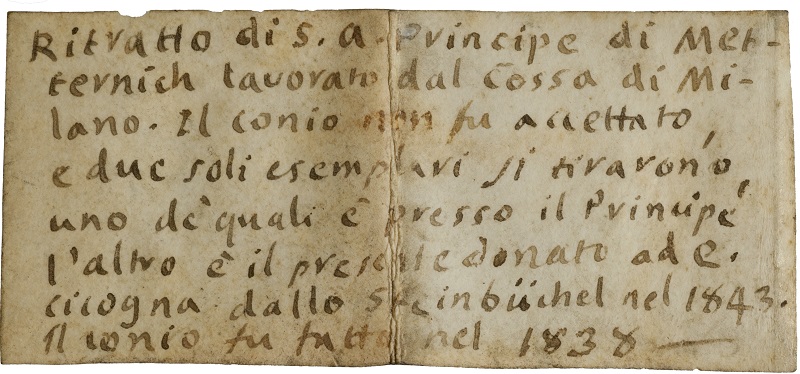 Ritratto di S. A. Principe di Met-
ternich lavorato dal Cossa di Mi-
lano. Il conio non fu accettato,
e due soli esemplari si tirarono,
uno de' quali è presso il Principe
l'altro è il presente donato ad E.
cicogna dallo Steinbüchel nel 1843.
Il conio fu fatto nel 1838 —